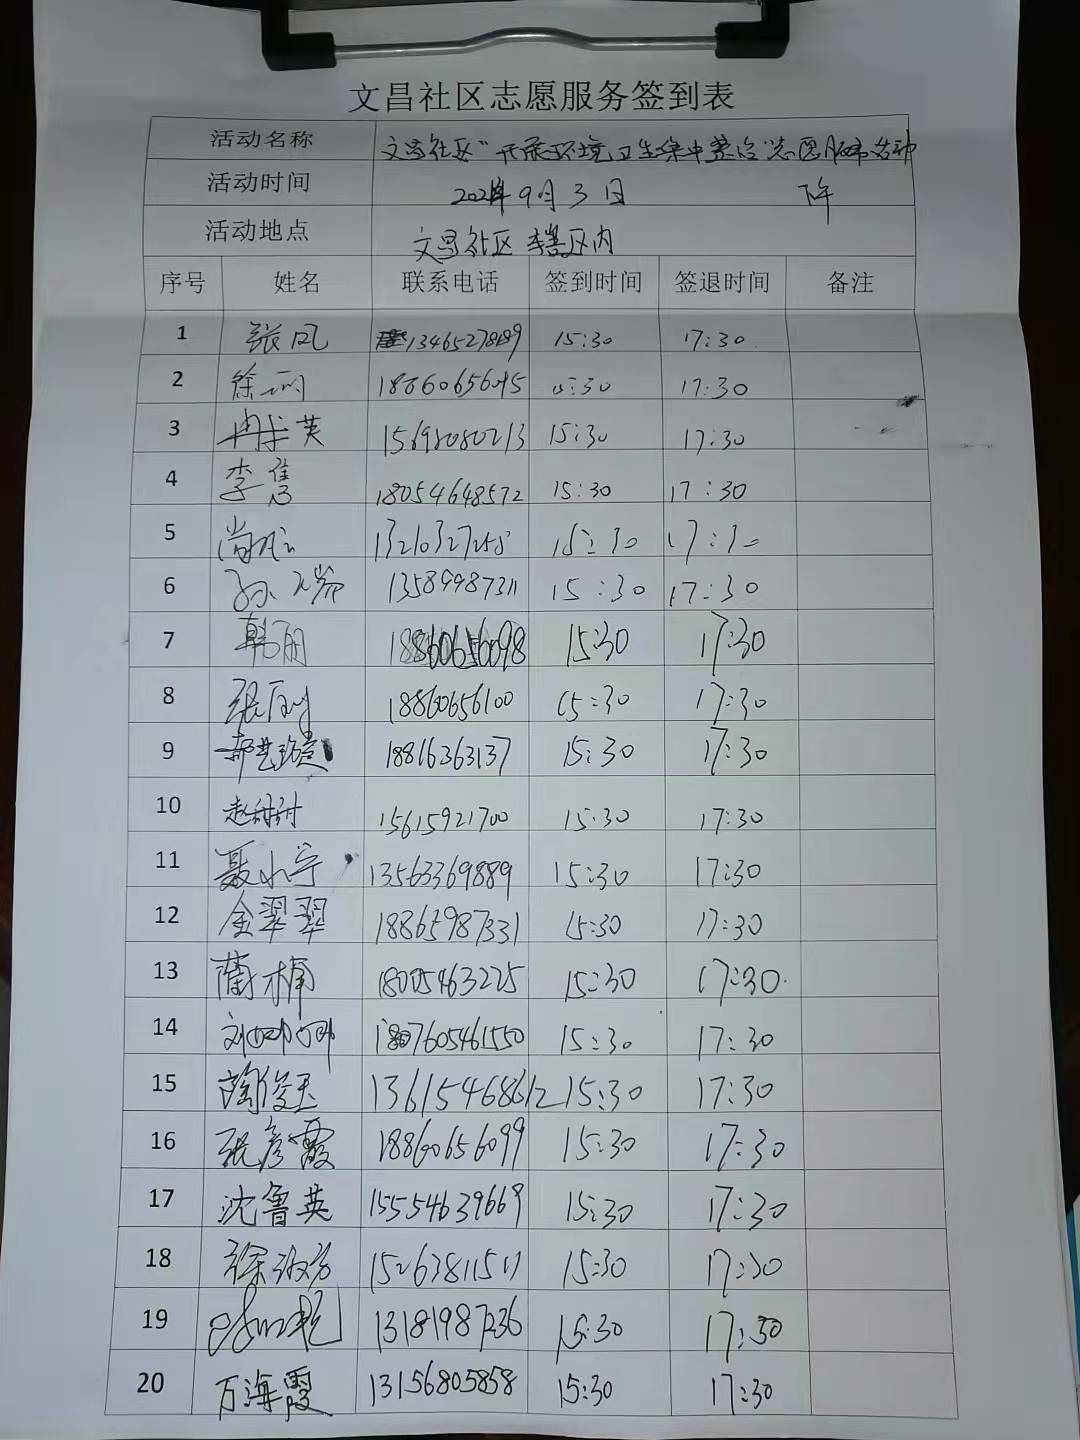 文昌社区志愿服务签到表
活动名称 文昌社区"开展环境卫生集中整治"志愿服务活动
活动时间 2021年9月3日 下午
活动地点 文昌社区辖区内
序号 姓名 联系电话 签到时间 签退时间 备注
1 张风 15:30 17:30
2 徐丽 15:30 17:30
3 冉崇英 15698080213 15:30 17:30
4 李隽 18054648572 15:30 17:30
5 15:30 17:30
6 孙 13589987311 15:30 17:30
7 韩丽 18860656098 15:30 17:30
8 张丽 18860656100 15:30 17:30
9 郝艺璇 18816363137 15:30 17:30
10 赵甜甜 15615921700 15:30 17:30
11 聂小宁 13563369889 15:30 17:30
12 金翠翠 18865987331 15:30 17:30
13 蔺楠 18005463225 15:30 17:30
14 刘娜娜 17605461550 15:30 17:30
15 陶俊玉 13615468612 15:30 17:30
16 张彦霞 18860656099 15:30 17:30
17 沈鲁英 15554639669 15:30 17:30
18 徐淑芳 15263811511 15:30 17:30
19 13181987236 15:30 17:30
20 万海霞 13156805858 15:30 17:30